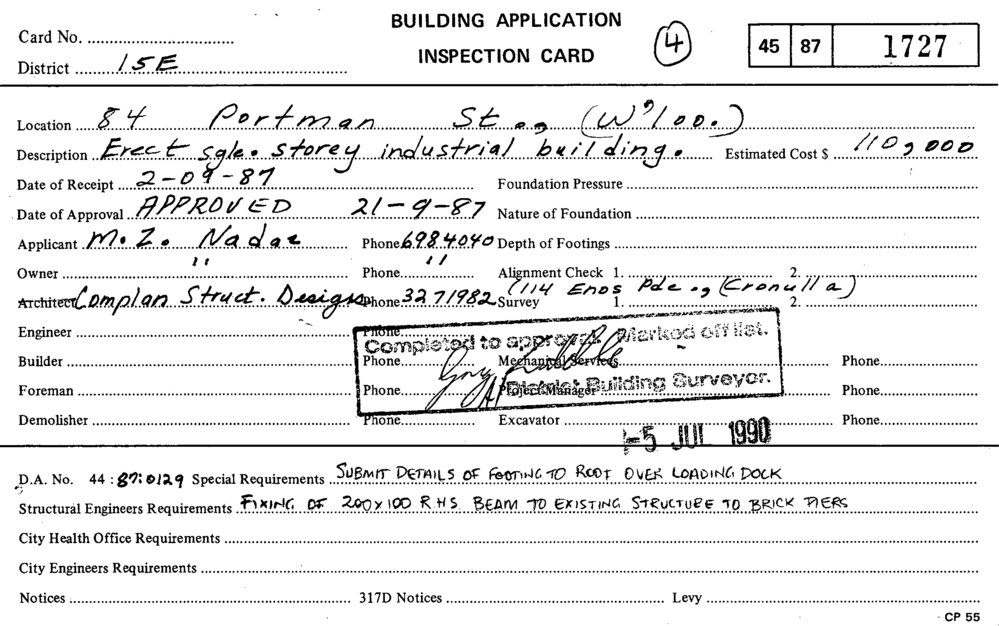 BUILDING APPLICATION
INSPECTION CARD
Card No.
District 15E
4
45 87 1727
Location 84 Portman St., (W'loo.)
Description Erect sgle. storey industrial building. Estimated Cost $ 110,000
Date of Receipt 2-09-87 Foundation Pressure
Date of Approval APPROVED 21-9-87 Nature of Foundation
Applicant M. Z. Nadac Phone 6984040 Depth of Footings
Owner " Phone " Alignment Check 1. 2.
Architect Complan Struct. Designs Phone 3271982 Survey (114 Enos Pde., Cronulla) 1. 2.
Engineer Phone
Completed to approval. Marked off list.
Builder Phone Mechanical Services Phone
Foreman Phone Project Manager Phone
District Building Surveyor.
Demolisher Phone Excavator Phone
-5 JUL 1990
D.A. No. 44 : 87:0129 Special Requirements SUBMIT DETAILS OF FOOTING TO ROOF OVER LOADING DOCK
Structural Engineers Requirements FIXING OF 200x100 R.H.S. BEAM TO EXISTING STRUCTURE TO BRICK PIERS
City Health Office Requirements
City Engineers Requirements
Notices 317D Notices Levy
CP 55